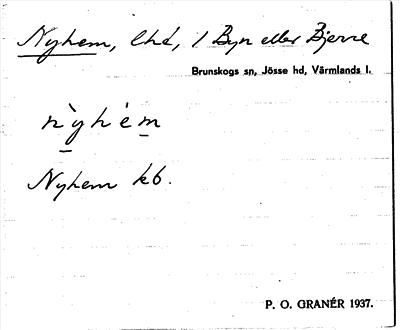 Nyhem, lhd, / Byn eller Bjerre
Brunskogs sn, Jösse hd, Värmlands l.
nỳhém
Nyhem kb.
P. O. GRANÉR 1937.